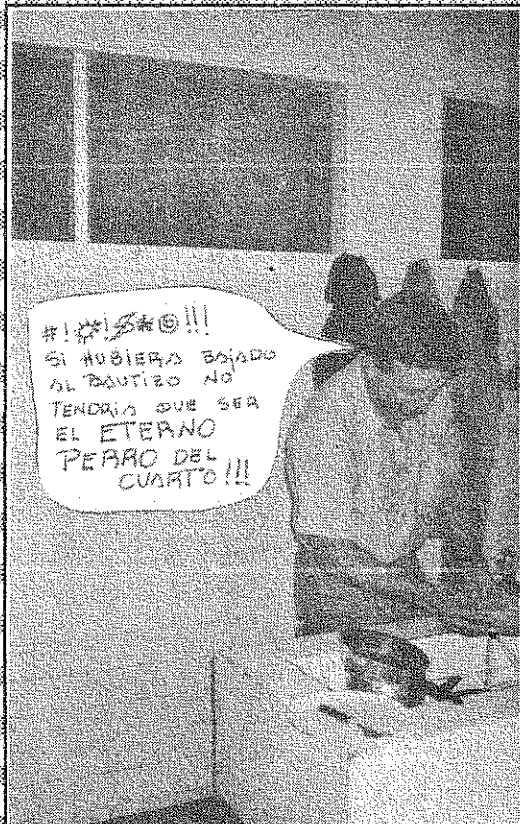 #!#!$*©!!!
SI HUBIERA BAJADO
AL BAUTIZO NO
TENDRIA QUE SER
EL ETERNO
PERRO DEL
CUARTO!!!